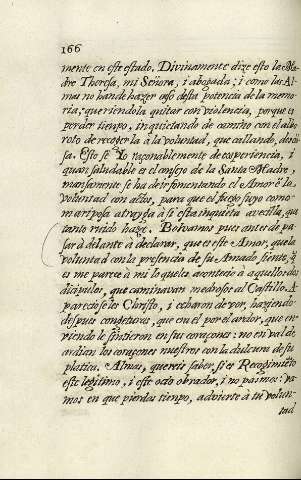 166
mente en este estado. Divinamente dize esto la Ma-
dre Theresa, mi Señora, i abogada; i como las Al-
mas no han de hazer caso desta potencia de la memo-
ria; queriendola quitar con violencia, porque es
perder tiempo, inquietando de camino con el albo-
roto de recogerla à la voluntad, que callando, desca-
sa. Esto sè Yo razonablemente de experiencia, i
quan saludable es el consejo de la Santa Madre,
mansamente se ha de ir fomentando el Amor è la
voluntad con actos, para que el fuego suyo como
mariposa atrayga à si esta inquieta avecilla, que
tanto ruido haze. Bolvamos pues antes de pa-
sar à delante à declarar, que es este Amor, que la
voluntad con la presencia de su Amado siente, q̃
es me parece à mi lo que les aconteciò à aquellos dos
discipulos, que caminavan medrosos al Castillo. A
pareciòseles Christo, i echaron de ver, haziendo
despues conjeturas, que era el por el ardor, que en
viendole sintieron en sus coraçones: no en val de
ardian los coraçones nuestros con la dulcura de su
platica. Almas, quereis saber, si es Recogimiẽto
este legitimo, i este acto obrador, i no pasmos: va-
mos en que pierdas tiempo, advierte à tu volun-
tad